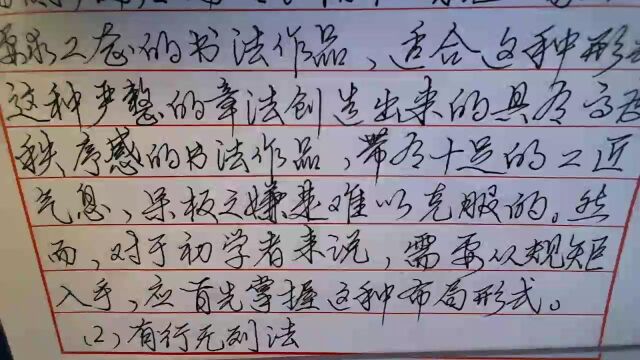 要求工态的书法作品，适合这种形
这种严整的章法创造出来的具有高
秩序感的书法作品，带有十足的工匠
气息，呆板之嫌是难以克服的。然
而，对于初学者来说，需要从规矩
入手，应首先掌握这种布局形式。
(2)有行无列法